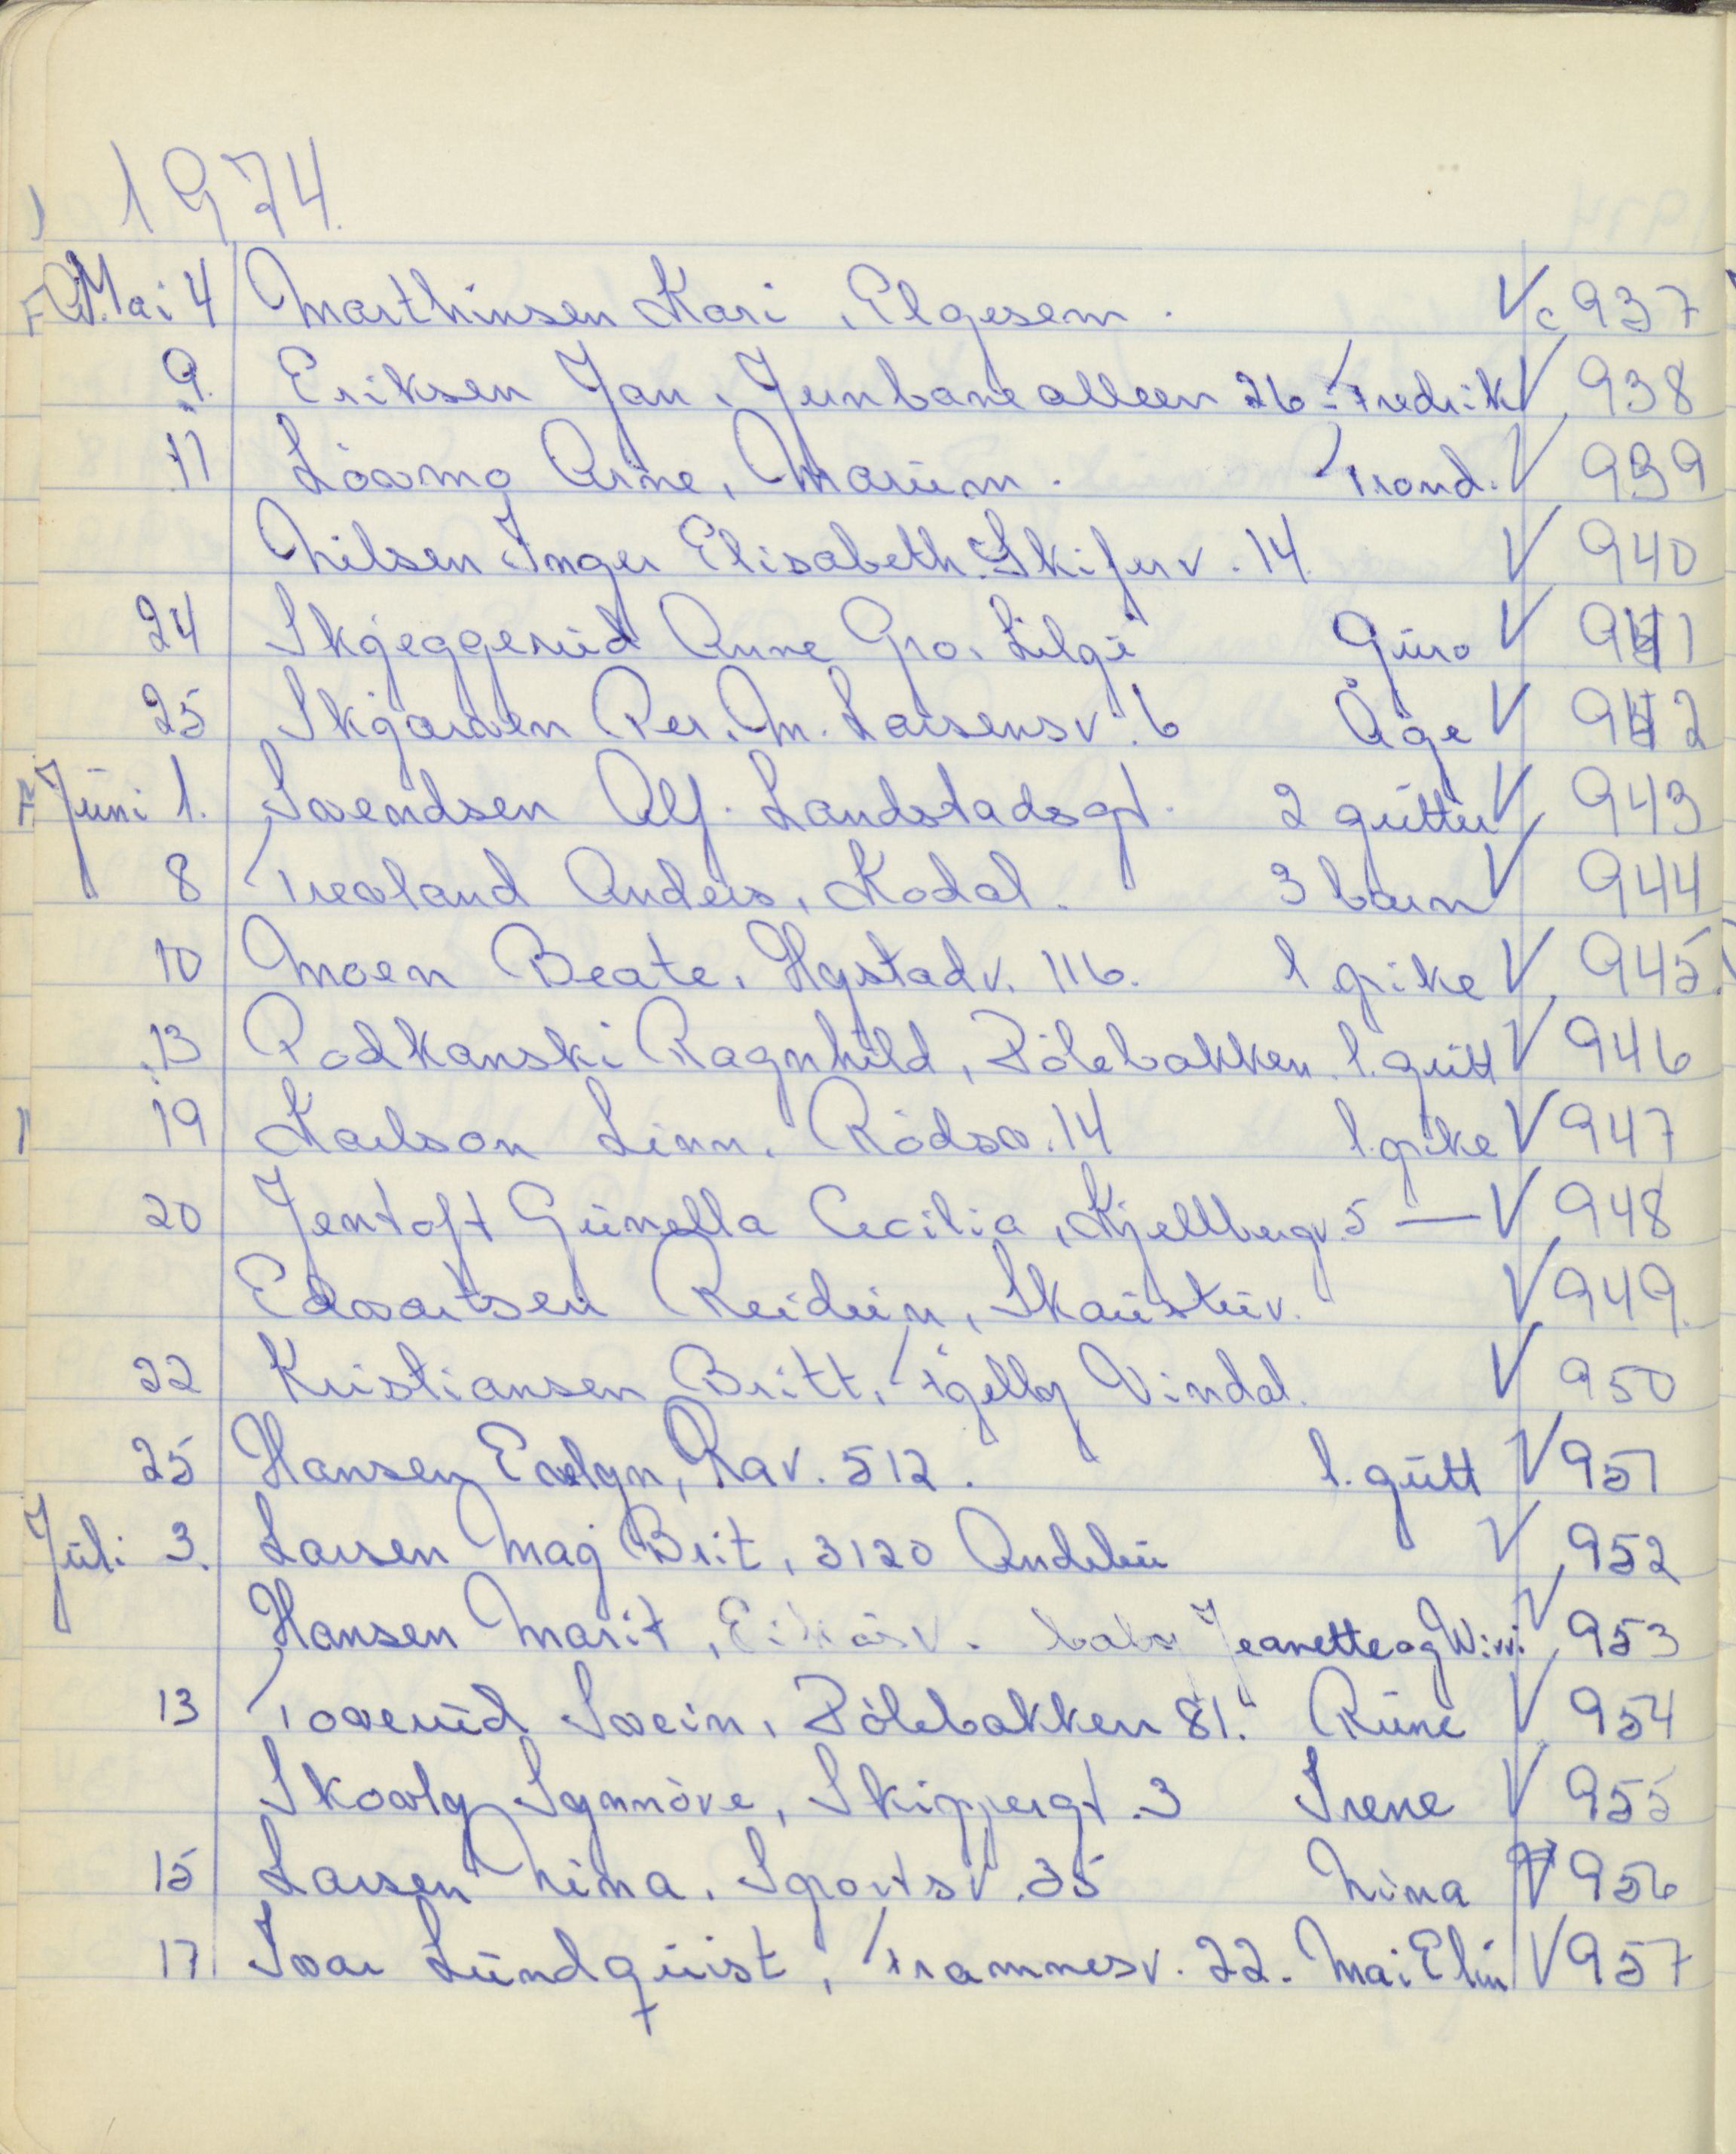 1974.
Mai 4 Marthinsen Kari, Elgesem. V 937
9. Eriksen Jan, Jernbanealleen 26. Fredrik V 938
11 Lövmo Arne, Marum. Trond. V 939
Nilsen Inger Elisabeth. Skiferv. 14 V 940
24 Skjeggerud Anne Gro, Lilgü Guro V 941
25 Skjarven Per, M. Larsensv. 6 Åge V 942
Juni 1. Svendsen Alf. Landstadsgt. 2 gutter V 943
8 Trevland Anders, Kodal. 3 barn V 944
10 Moen Beate, Hystadv. 116. 1 pike V 945
13 Podkanski Ragnhild, Pölebakken. 1. gutt V 946
19 Karlson Linn, Rödsv. 14 1. pike V 947
20 Jentoft Gunella Cecilia, Kjellbergv. 5 — V 948
Edvartsen Reidun, V 949.
22 Kristiansen Britt, Fjellv Vindal. V 950
25 Hansen Evelyn, Rav. 512. 1. gutt V 951
Juli 3. Larsen Maj Brit, 3120 Andebu V 952
Hansen Marit, Eikåsv. baby Jeanette og Wivi. V 953
13 Toverud Svein, Pölebakken 81. Rune V 954
Skovly Synnöve, Skippergt. 3 Irene V 955
15 Larsen Nina, Sportsv. 35 Nina V 956
17 Ivar Lundquist, Framnesv. 22. Mai Elin V 957